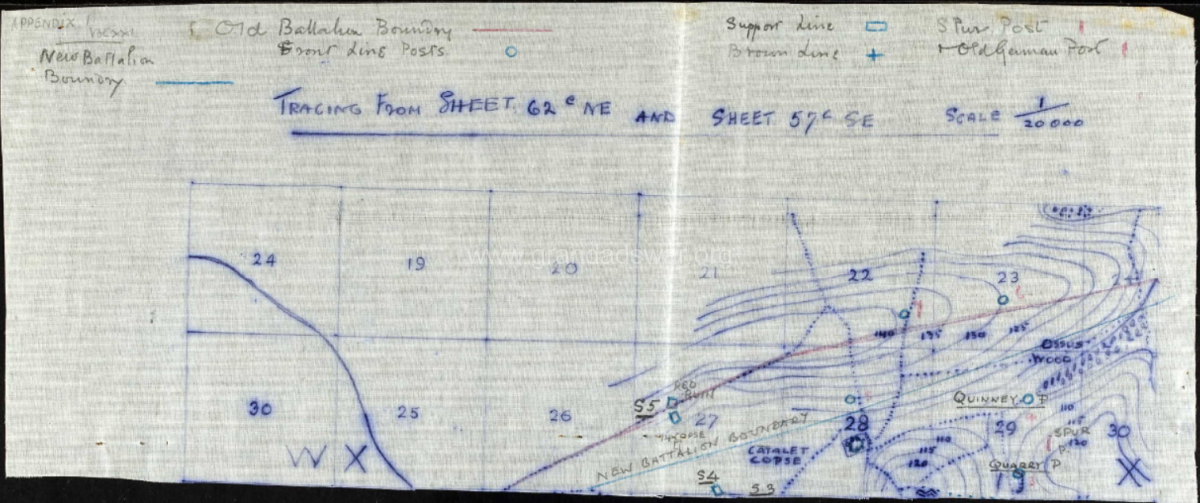 APPENDIX 1
Old Battalion Boundary
Front Line Posts
New Battalion
Boundry
Support Line
Brown Line
Spur Post
+ Old German Post
TRACING FROM SHEET. 62c NE AND SHEET 57c SE SCALE 1/20000
24 19 20 21 22 23 24
www.grandadswar.org
140 135 130 125
OSSUS
WOOD
30 25 26 27 28 29 30
S5
RED
RUIN
QUINNEY P
110
115
120
SPUR
P
NEW BATTALION BOUNDARY
CATALET
COPSE
110
115
120
QUARRY P
W X
S4
S3
X